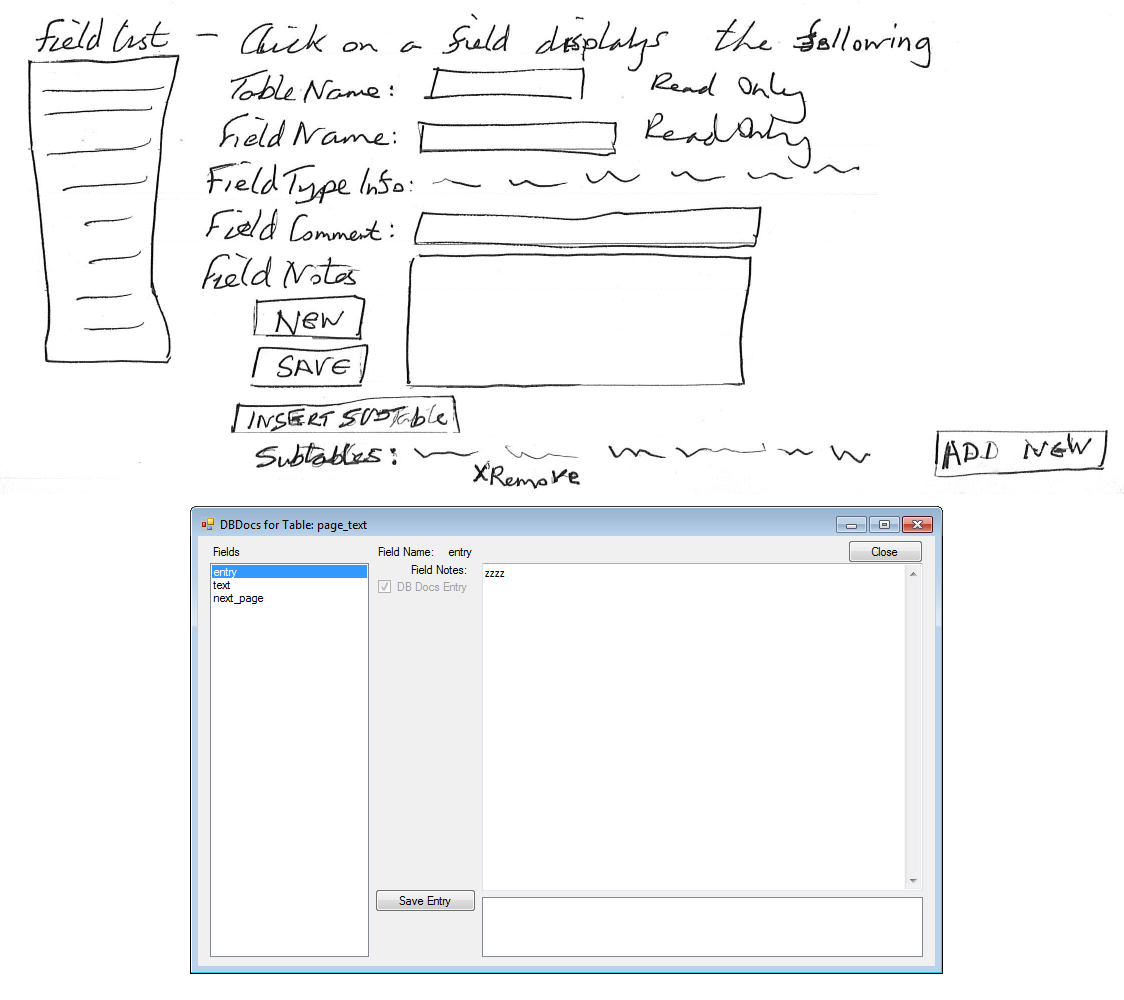 Field List - Click on a field displays the following
Table Name: Read Only
Field Name: Read Only
Field Type Info:
Field Comment:
Field Notes
NEW
SAVE
INSERT SUBTable
Subtables: ADD NEW
X Remove
DBDocs for Table: page_text
Fields
Field Name: entry
Close
entry
text
next_page
Field Notes:
DB Docs Entry
zzzz
Save Entry